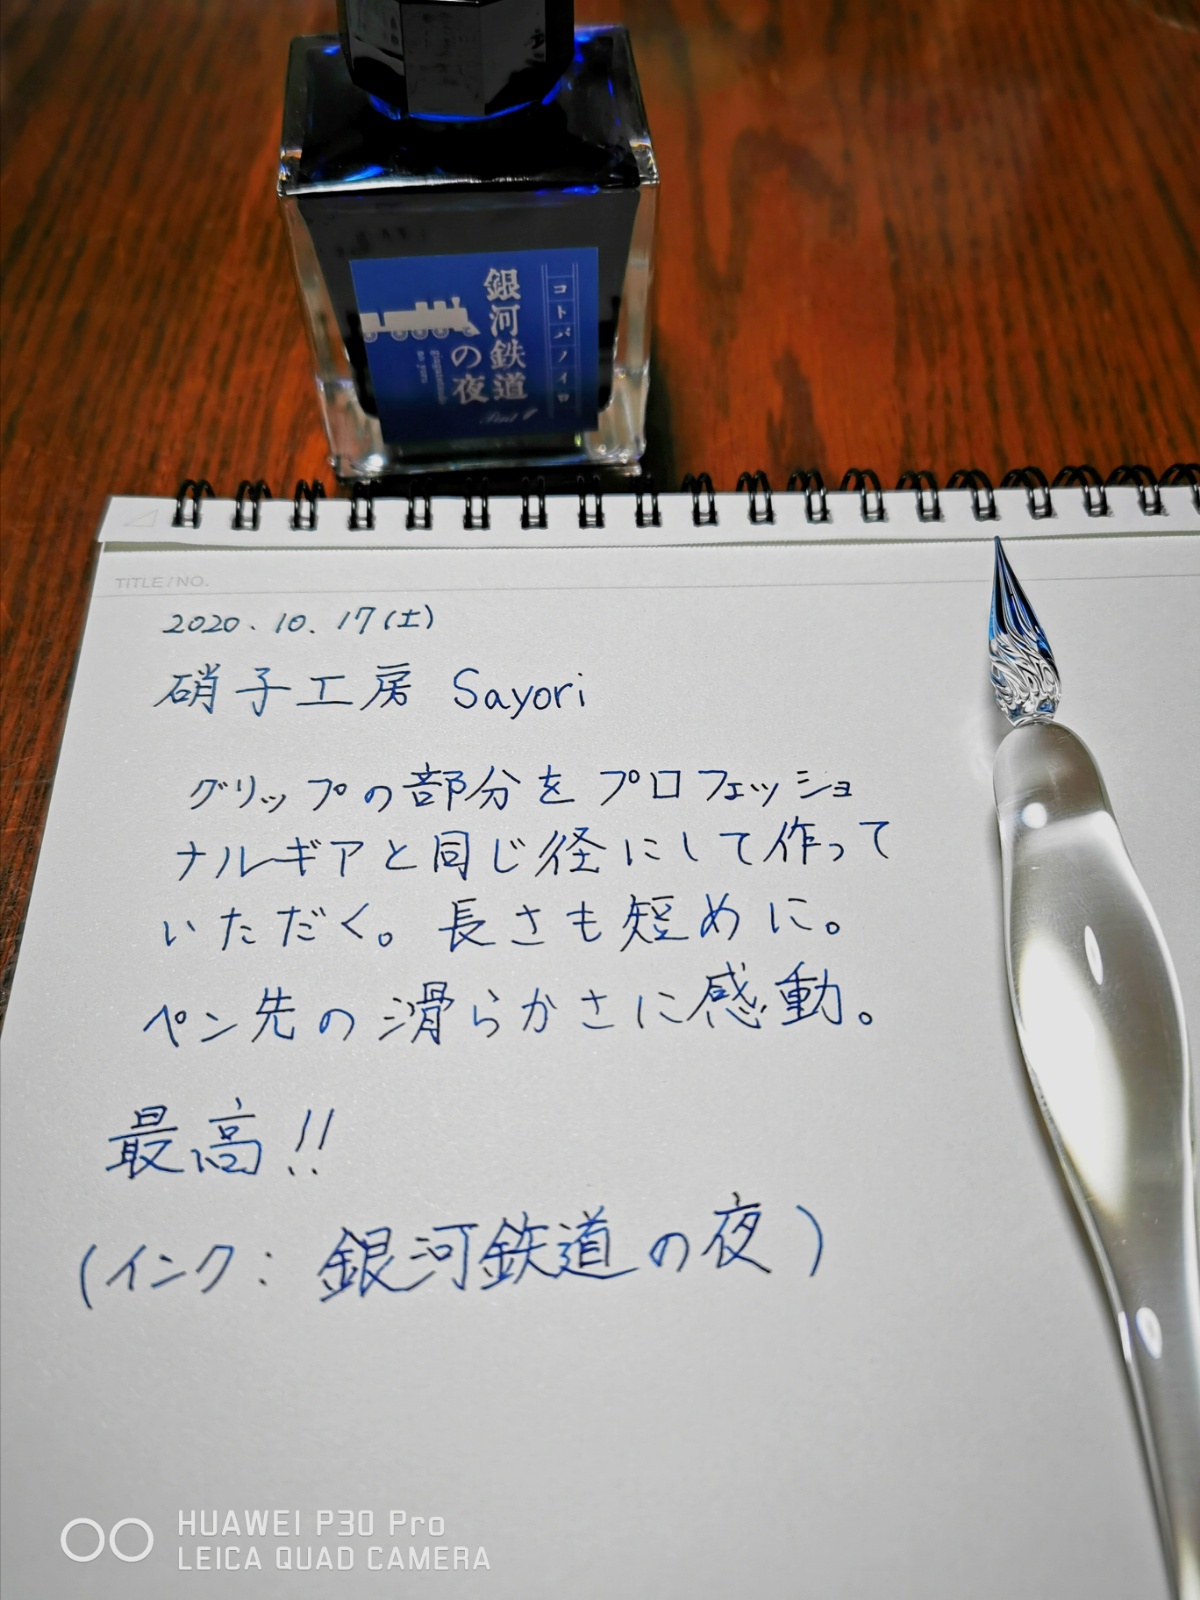 コトバノイロ
銀河鉄道
の夜
TITLE/NO.
2020.10.17(土)
硝子工房 Sayori
グリップの部分をプロフェッショ
ナルギアと同じ径にして作って
いただく。長さも短めに。
ペン先の滑らかさに感動。
最高!!
(インク: 銀河鉄道の夜)
HUAWEI P30 Pro
LEICA QUAD CAMERA